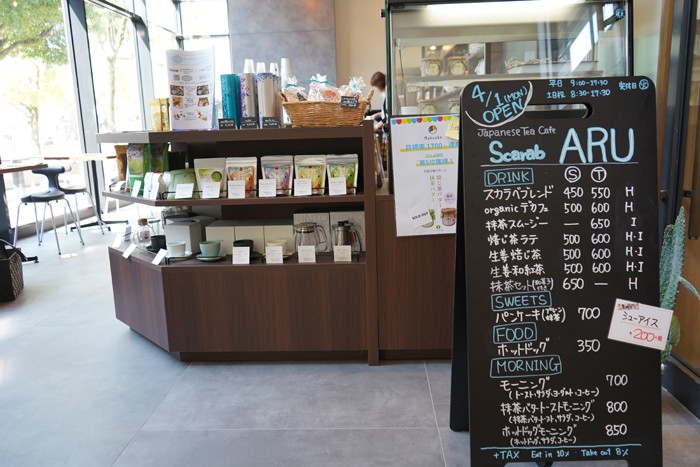 4/1(MON) OPEN
平日 9:00-19:30
土日祝 8:30-19:30
定休日
Japanese Tea Cafe
Scarab ARU
DRINK S T
スカラベブレンド 450 550 H
organicデカフェ 500 600 H
抹茶スムージー — 650 I
焙じ茶ラテ 500 600 H・I
生姜焙じ茶 500 600 H・I
生姜和紅茶 500 600 H・I
抹茶セット 650 — H
SWEETS
パンケーキ 700
FOOD
ホットドッグ 350
MORNING
モーニング 700
(トースト,サラダ,ヨーグルト,コーヒー)
抹茶バタートーストモーニング 800
(抹茶バタートースト,サラダ,コーヒー)
ホットドッグモーニング 850
(ホットドッグ,サラダ,コーヒー)
+TAX Eat in 10% ・ Take out 8%
シューアイス
¥200
Matcake
SOLD OUT